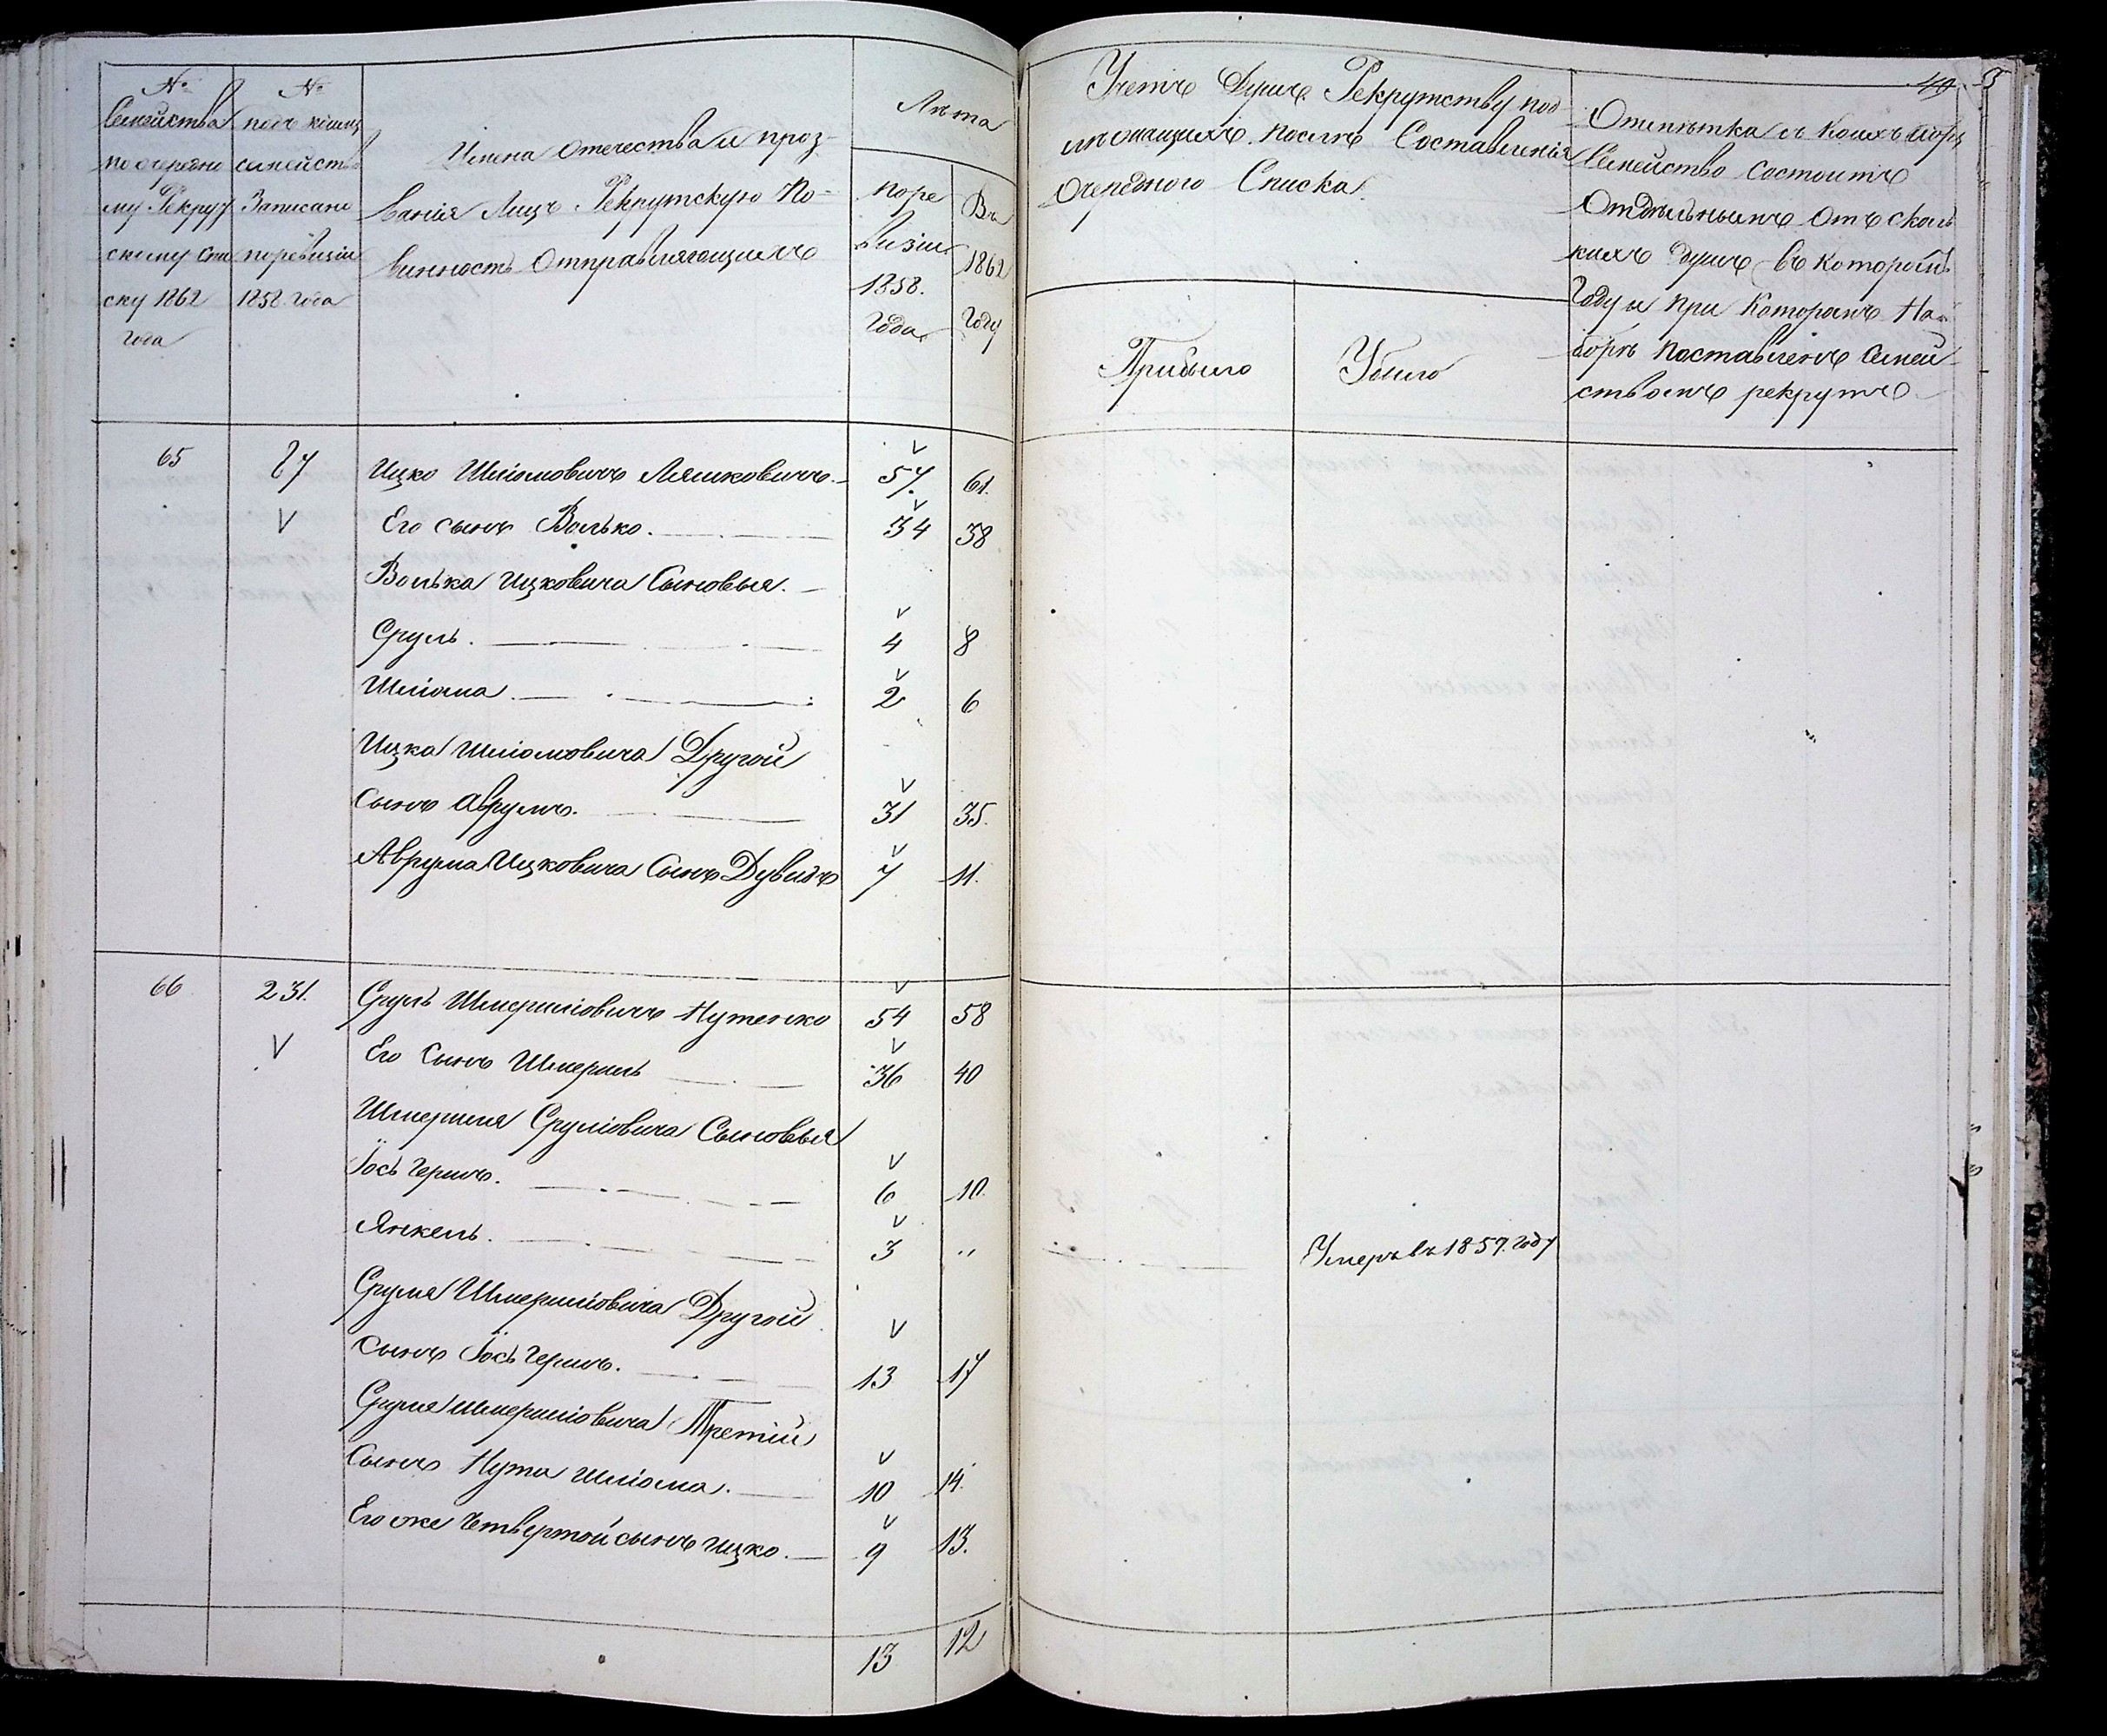 №
Семейства
по очередно
му Рекрут
скому спи
ску 1862
года
№
подъ коимъ
семейство
Записано
поревизіи
1858 года
Имена отечества и проз-
ванія Лицъ Рекрутскую По-
винность Отправляющихъ
Лѣта
поре
визіи
1858.
года
Въ
1862
году
Учетъ Душъ Рекрутству под-
лежащихъ послѣ Составленія
Очередного Списка
Прибыло
Убыло
49
Отмѣтка съ коихъ поръ
Семейство состоитъ
Отдѣльнымъ отъ сколь
кихъ душъ въ которомъ
Году и при Которомъ На-
борѣ поставленъ Семей
ствомъ рекрутъ
65 27 Ицко Шліомовичъ Ляшковичъ. 57. 61.
V Его сынъ Волько. 34 38
Волька Ицковича Сыновья.
Сруль. 4 8
Шліома. 2 6
Ицка Шліомовича Другой
сынъ Аврумъ. 31 35.
Аврума Ицковича Сынъ Дувидъ 7 11.
66 231. Сруль Шмериловичъ Нутенко 54 58
V Его Сынъ Шмериль 36 40
Шмериля Сруліовича Сыновья
Іось Гершъ. 6 10.
Янкель. 3 " Умеръ въ 1859. году
Сруля Шмериліовича Другой
сынъ Іось Гершъ. 13 17
Сруля Шмериліовича Третій
Сынъ Нута Шліома. 10 14.
Его же Четвертой сынъ Ицко. 9 13.
13 12